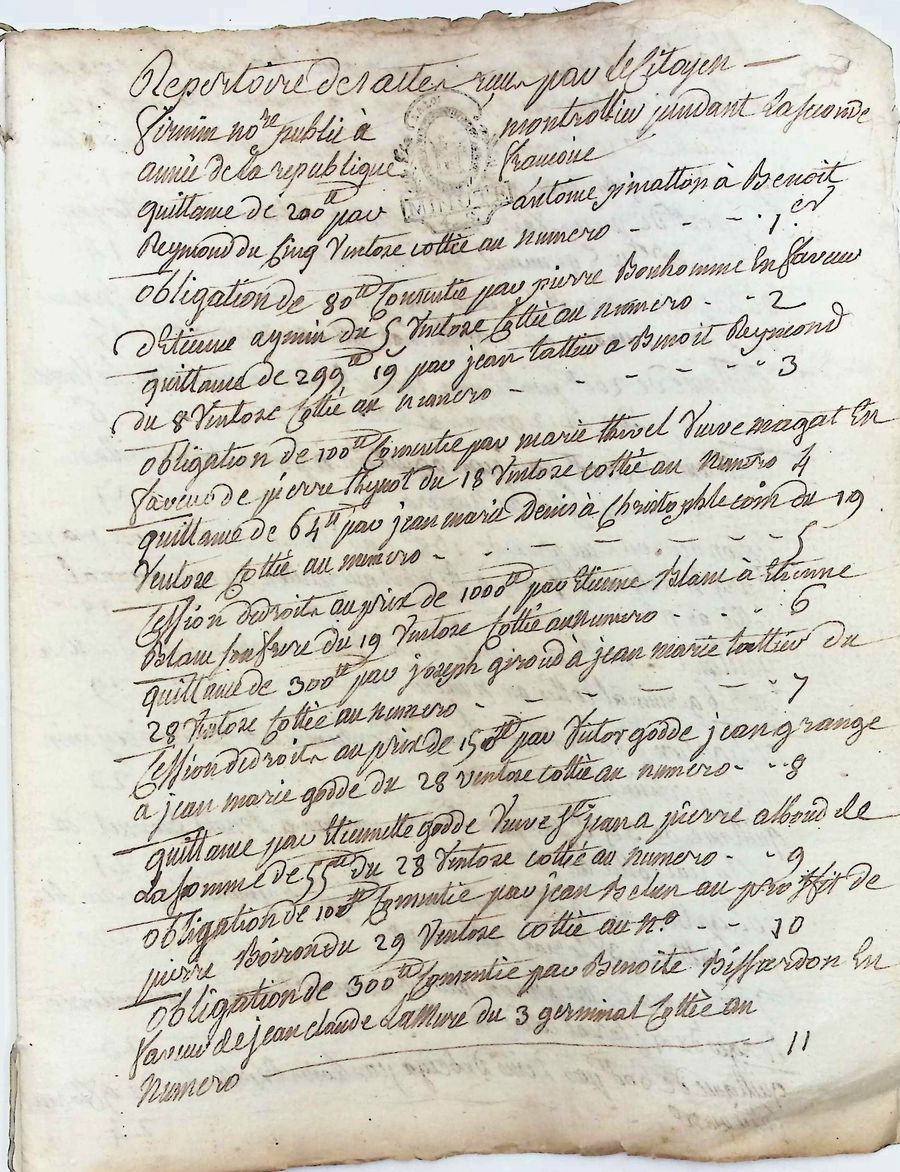 Repertoire des actes reçus par le Citoyen
firmin nore public a montrottier pendant la seconde
année de la republique francoise
quittance de 200tt par antoine pinatton à Benoit
Reymond du Cinq Ventose cottée au numero - - - - 1er
obligation de 80tt Consentie par pierre Bonhomme En faveur
d'Etienne aymin du 5 Ventose Cottée au numero - - 2
quittance de 299tt 19 par jean tattieu a Benoit Reymond
du 8 Ventose Cottée au numero - - - - - - - 3
obligation de 100tt Consentie par marie thivel Veuve magat En
faveur de pierre Peynot du 18 Ventose cottée au Numero 4
quittance de 64tt par jean marie Denis à Christophle coin du 19
Ventose Cottée au numero - - - - - - - 5
Cession de droits au prix de 1000tt par Etienne Blanc à Etienne
Blanc son frere du 19 Ventose Cottée au numero - - - 6
quittance de 300tt par joseph giroud à jean marie tattieu du
28 Ventose Cottée au numero - - - - - - - 7
Cession de droits au prix de 150tt par Victor godde jean grange
a jean marie godde du 28 ventose cottée au numero - - 8
quittance par Etiennette godde Veuve St jean a pierre alboud de
La somme de 55tt du 28 Ventose cottée au numero - - 9
obligation de 100tt Consentie par jean Belun au proffit de
pierre Boiron du 29 Ventose cottée au no - - 10
obligation de 300tt Consentie par Benoite Bissardon En
faveur de jean claude Lassure du 3 germinal Cottée au
Numero 11